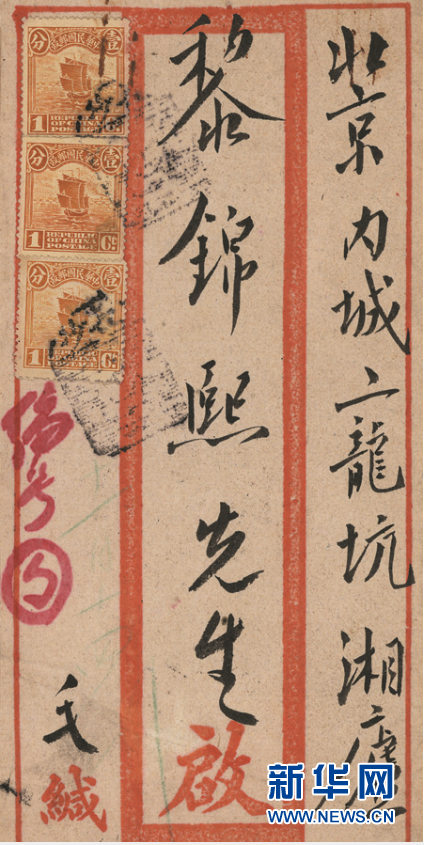 北京内城二龍坑湘
黎錦熙先生啟
中華民國郵政
壹分
1 REPUBLIC OF CHINA POSTAGE
中華民國郵政
壹分
1 REPUBLIC OF CHINA POSTAGE Ct.
中華民國郵政
壹分
1 REPUBLIC OF CHINA POSTAGE Ct.
编号
毛緘
新华网
WWW.NEWS.CN